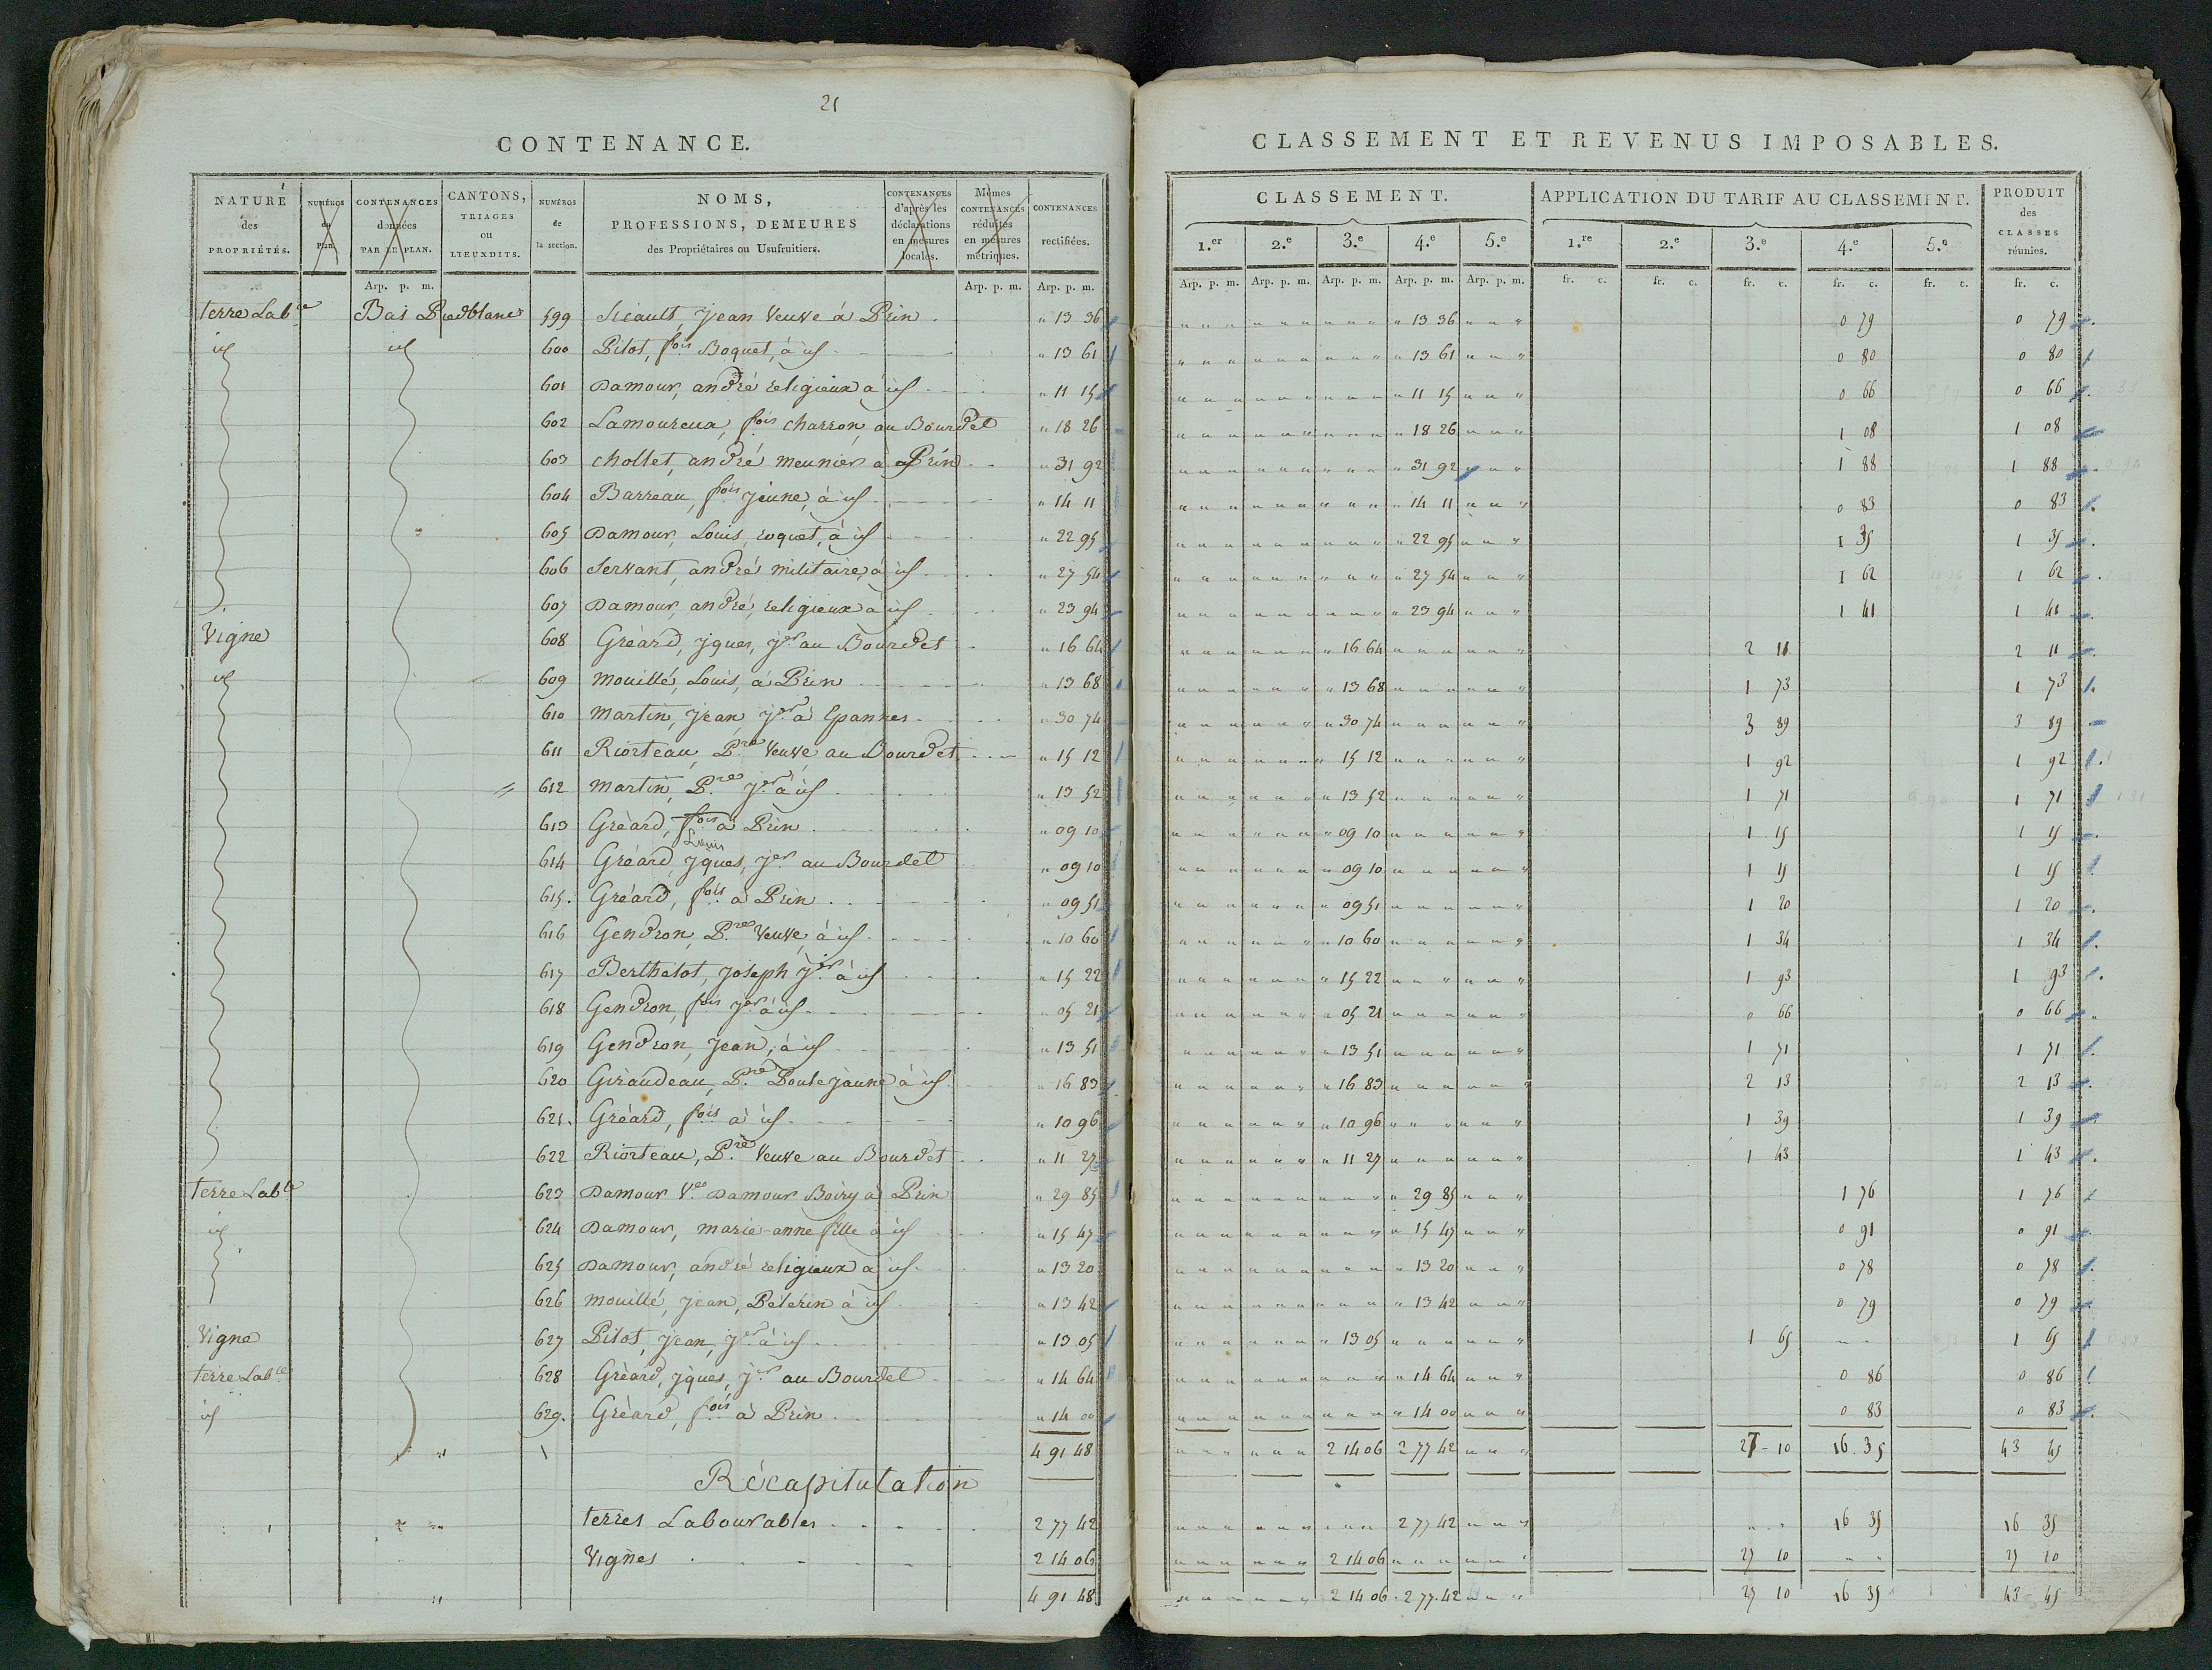 21
CONTENANCE.
NATURE des PROPRIÉTÉS. NUMÉROS du Plan. CONTENANCES données PAR LE PLAN. CANTONS, TRIAGES ou LIEUXDITS. NUMÉROS de la section. NOMS, PROFESSIONS, DEMEURES des Propriétaires ou Usufruitiers. CONTENANCES d'après les déclarations en mesures locales. Mêmes CONTENANCES réduites en mesures métriques. CONTENANCES rectifiées.
Arp. p. m. Arp. p. m. Arp. p. m.
terre Lable Bas Piedblanc 599 Sicault, Jean Veuve à Prin " 13 36
id id 600 Pitot, fois Boquet, à id " 13 61
601 Damour, andré religieux à id " 11 15
602 Lamoureux, fois charron, au Bourdet " 18 26
603 chollet, andré meunier à Prin " 31 92
604 Barreau, fois jeune, à id " 14 11
605 Damour, Louis, roquet, à id " 22 95
606 Servant, andré militaire, à id " 27 54
607 Damour, andré, religieux à id " 23 94
Vigne 608 Gréard, jques, jer au Bourdet " 16 64
id 609 Mouillé, Louis, à Prin " 13 68
610 Martin, Jean jer à Epannes " 30 74
611 Riorteau, Pre Veuve au Bourdet " 15 12
612 Martin, Pre jer à id " 13 52
613 Gréard, fois à Prin " 09 10
Louis
614 Gréard, jques, jer au Bourdet " 09 10
615. Gréard, fois à Prin " 09 51
616 Gendron, Pre Veuve, à id " 10 60
617 Berthelot, joseph jer à id " 15 22
618 Gendron, fois jer à id " 05 21
619 Gendron, Jean, à id " 13 51
620 Giraudeau, Pre Poule jaune à id " 16 83
621. Gréard, fois à id " 10 96
622 Riorteau, Pre Veuve au Bourdet " 11 27
terre Lable 623 Damour Ve Damour Boiry à Prin " 29 85
id 624 Damour, marie-anne fille à id " 15 47
625 Damour, andré religieux à id " 13 20
626 Mouillé, Jean, Pélerin à id " 13 42
Vigne 627 Pitot, Jean, jer à id " 13 05
terre Lable 628 Gréard, jques, jer au Bourdet " 14 64
id 629. Gréard, fois à Prin " 14 00
4 91 48
Récapitulation
terres Labourables 2 77 42
Vignes 2 14 06
4 91 48
CLASSEMENT ET REVENUS IMPOSABLES.
CLASSEMENT. APPLICATION DU TARIF AU CLASSEMENT. PRODUIT des CLASSES réunies.
1.er 2.e 3.e 4.e 5.e 1.re 2.e 3.e 4.e 5.e
Arp. p. m. Arp. p. m. Arp. p. m. Arp. p. m. Arp. p. m. fr. c. fr. c. fr. c. fr. c. fr. c. fr. c.
" 13 36 0 79 0 79
" 13 61 0 80 0 80
" 11 15 0 66 0 66
" 18 26 1 08 1 08
" 31 92 1 88 1 88
" 14 11 0 83 0 83
" 22 95 1 35 1 35
" 27 54 1 62 1 62
" 23 94 1 41 1 41
" 16 64 2 11 2 11
" 13 68 1 73 1 73
" 30 74 3 89 3 89
" 15 12 1 92 1 92
" 13 52 1 71 1 71
" 09 10 1 15 1 15
" 09 10 1 15 1 15
" 09 51 1 20 1 20
" 10 60 1 34 1 34
" 15 22 1 93 1 93
" 05 21 0 66 0 66
" 13 51 1 71 1 71
" 16 83 2 13 2 13
" 10 96 1 39 1 39
" 11 27 1 43 1 43
" 29 85 1 76 1 76
" 15 47 0 91 0 91
" 13 20 0 78 0 78
" 13 42 0 79 0 79
" 13 05 1 65 1 65
" 14 64 0 86 0 86
" 14 00 0 83 0 83
2 14 06 2 77 42 27 10 16 35 43 45
2 77 42 16 35 16 35
2 14 06 27 10 27 10
2 14 06 2 77 42 27 10 16 35 43 45